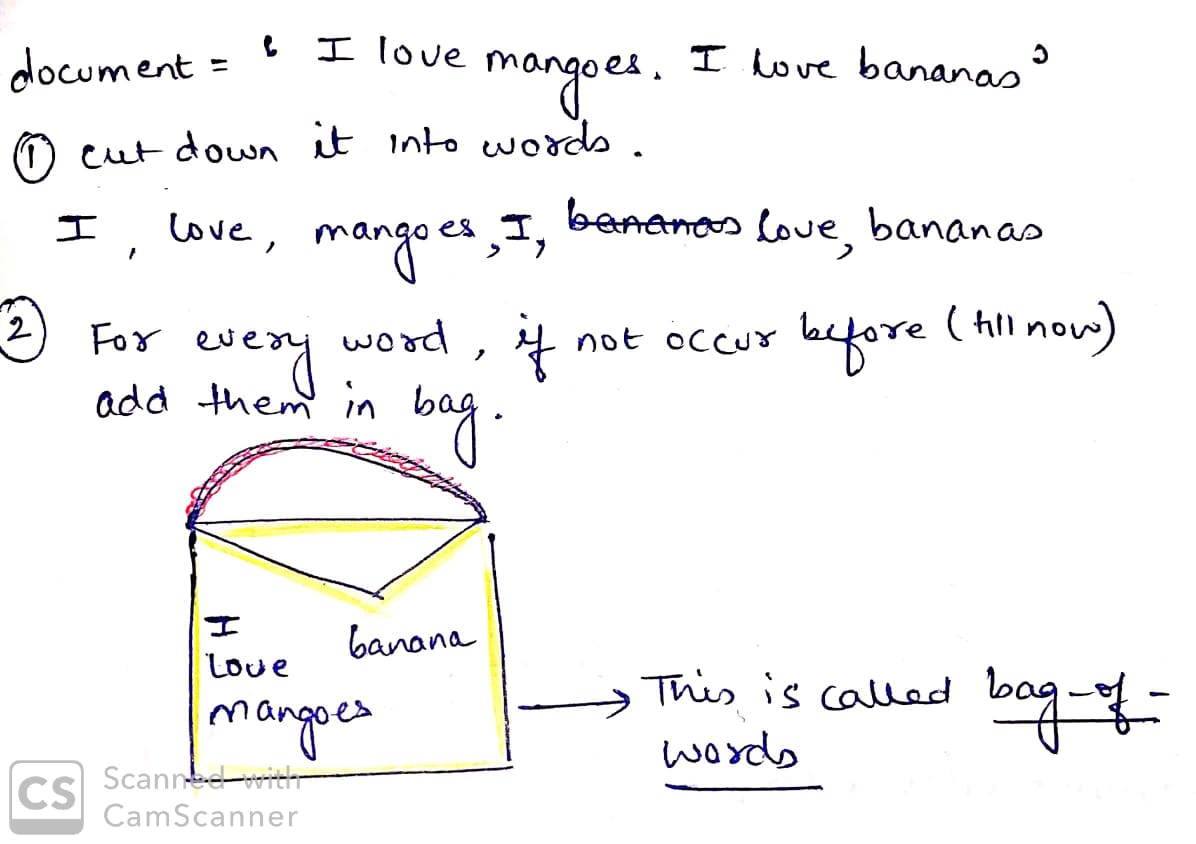 document = ' I love mangoes. I love bananas '
① cut down it into words.
I, love, mangoes, I, bananas love, bananas
② For every word, if not occur before (till now)
add them in bag.
I
love
banana
mangoes
→ This is called bag-of-
words
CS Scanned with
CamScanner